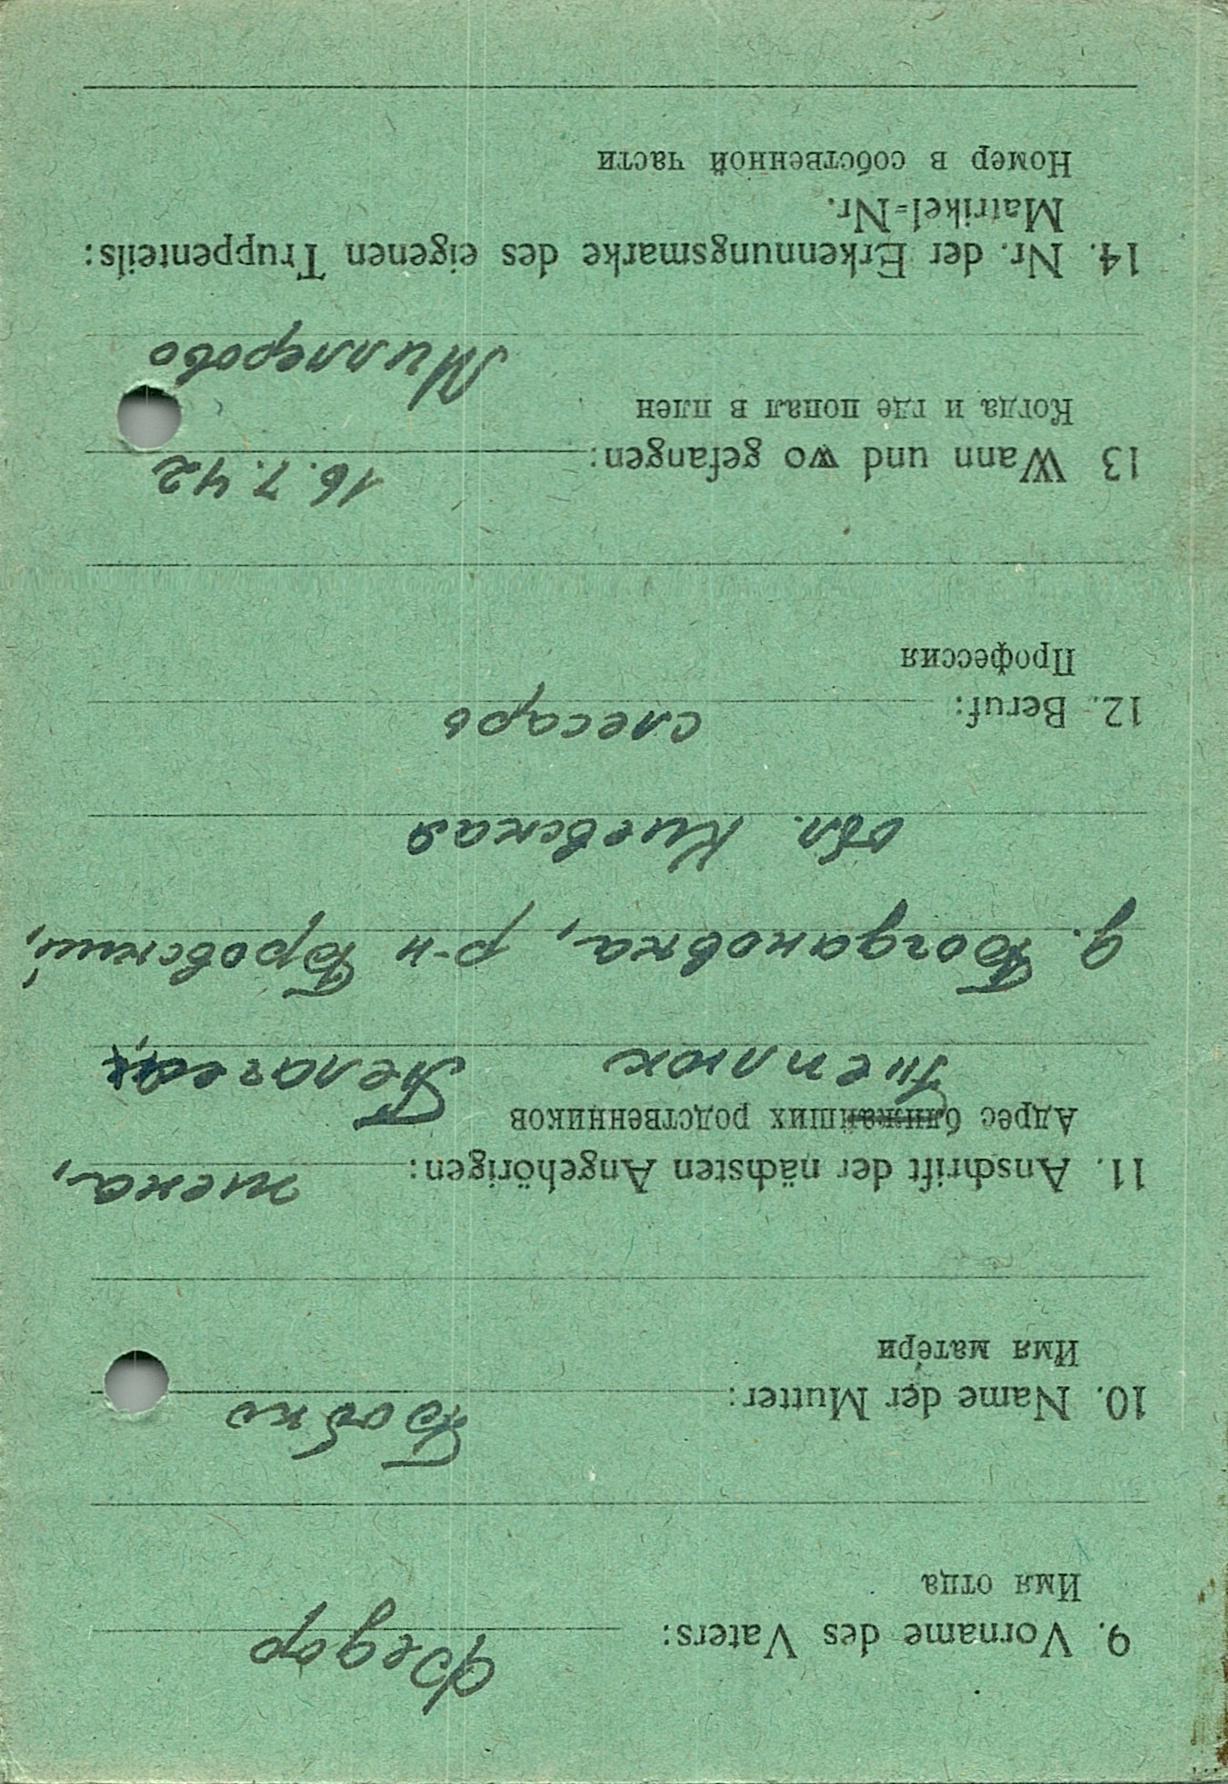 9. Vorname des Vaters: Федор
Имя отца
10. Name der Mutter: Бобко
Имя матери
11. Anschrift der nächsten Angehörigen: жена,
Адрес ближайших родственников
Пелагея,
д. Богдановка, р-н Бровский,
обл. Киевская
12. Beruf: слесарь
Профессия
13 Wann und wo gefangen: 16.7.42
Когда и где попал в плен
Миллерово
14. Nr. der Erkennungsmarke des eigenen Truppenteils:
Matrikel-Nr.
Номер в собственной части